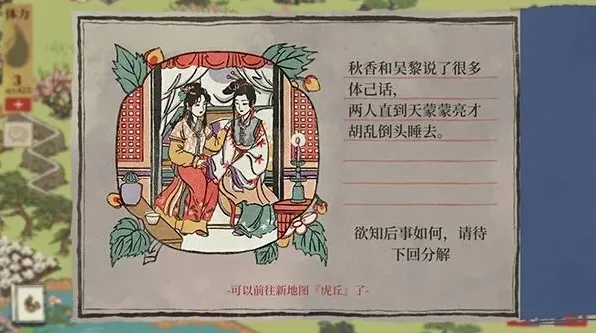 体力
3
秋香和吴黎说了很多
体己话，
两人直到天蒙蒙亮才
胡乱倒头睡去。
欲知后事如何，请待
下回分解
-可以前往新地图『虎丘』了-